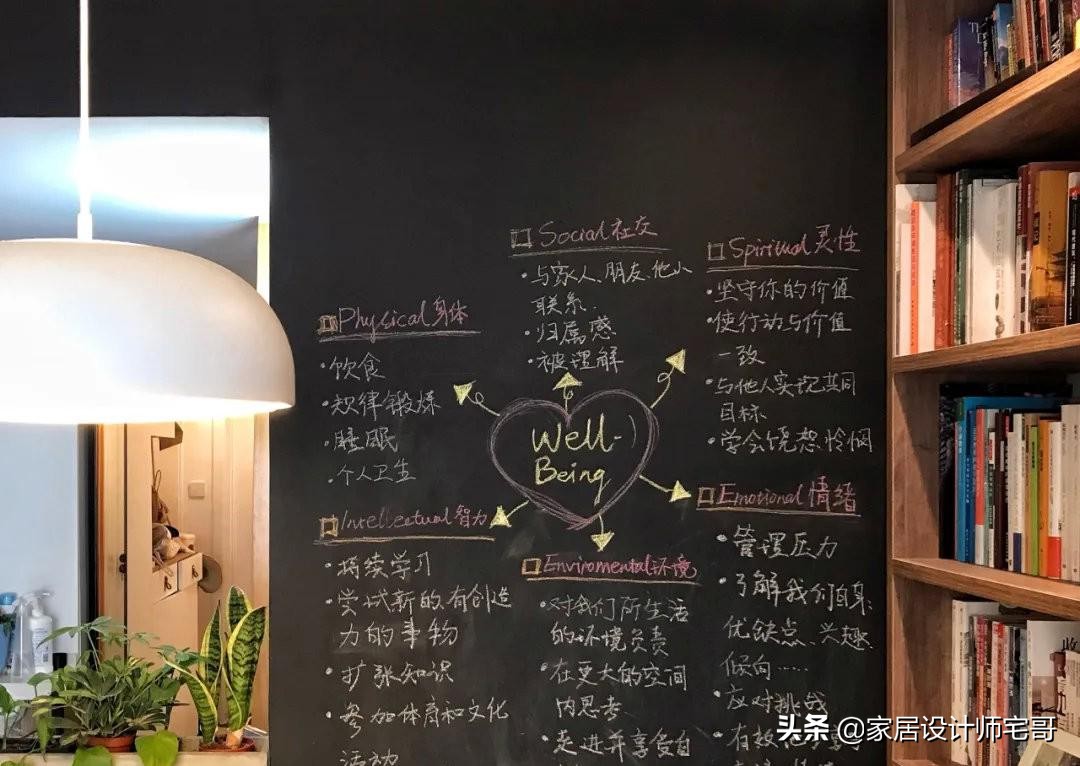 Well-)
Being
Social 社交
·与家人、朋友、他人
联系.
·归属感
·被理解
Spiritual 灵性
·坚守你的价值
·使行动与价值
一致
·与他人实现共同
目标
·学会宽恕、怜悯
Physical 身体
·饮食
·规律锻炼
·睡眠
·个人卫生
Emotional 情绪
·管理压力
·了解我们自身
优缺点、兴趣、
倾向……
·应对挑战
·有效
Intellectual 智力
·持续学习
·尝试新的、有创造
力的事物
·扩张知识
·参加体育和文化
活动
Enviromental 环境
·对我们所生活
的环境负责
·在更大的空间
内思考
·走进并享受自
头条 @家居设计师宅哥